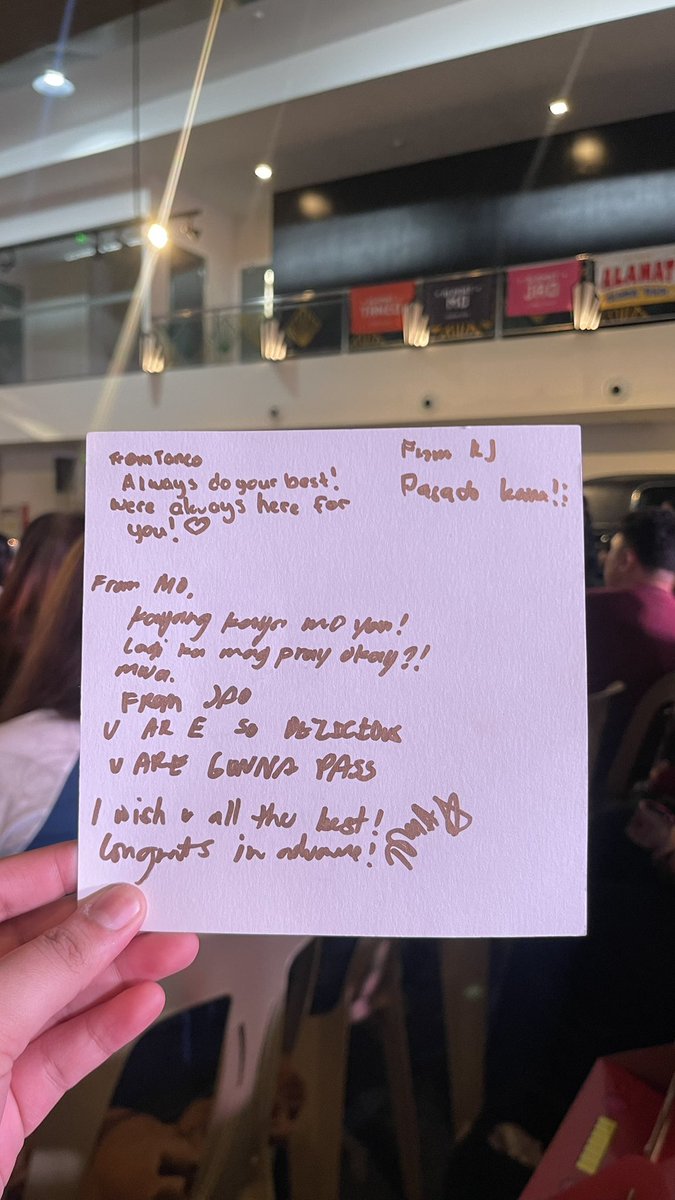 ALAMAT
TANEO
MO
JAO
From Taneo
Always do your best!
We're always here for
you!
From RJ
Pasado kana!!
From MO,
Kayang kaya mo yan!
Lagi ka mag pray okay?!
mwa.
FROM JAO
U ARE SO DELICIOUS
U ARE GONNA PASS
I wish u all the best!
Congrats in advance!